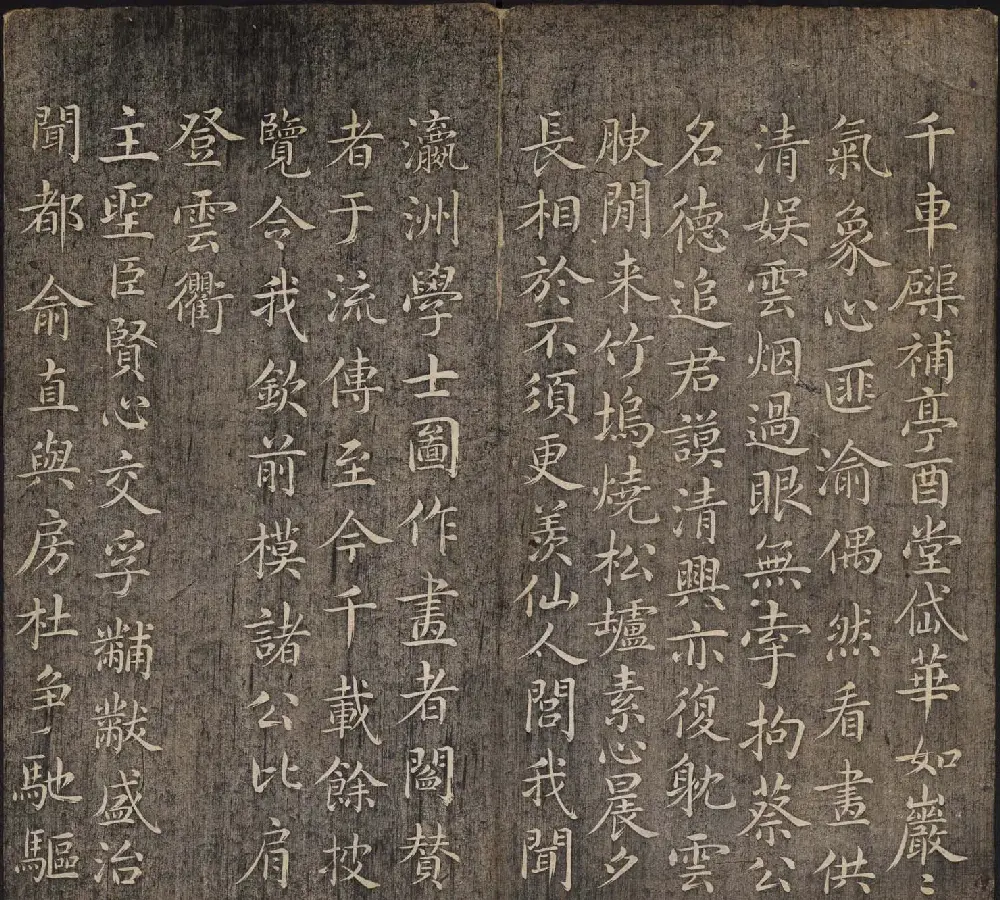 千車補亭酉堂岱華如巖〻
氣象心匪渝偶然看畫供
清娱雲烟過眼無牽拘蔡公
名德追君謨清興亦復躭雲
腴閒来竹塢燒松壚素心晨夕
長相於不須更羨仙人閭我聞
瀛洲學士圖作畫者閻贊
者于流傳至今千載餘披
覽令我欽前模諸公比肩
登雲衢
主聖臣賢心交孚黼黻盛治
聞都俞直與房杜争馳驅